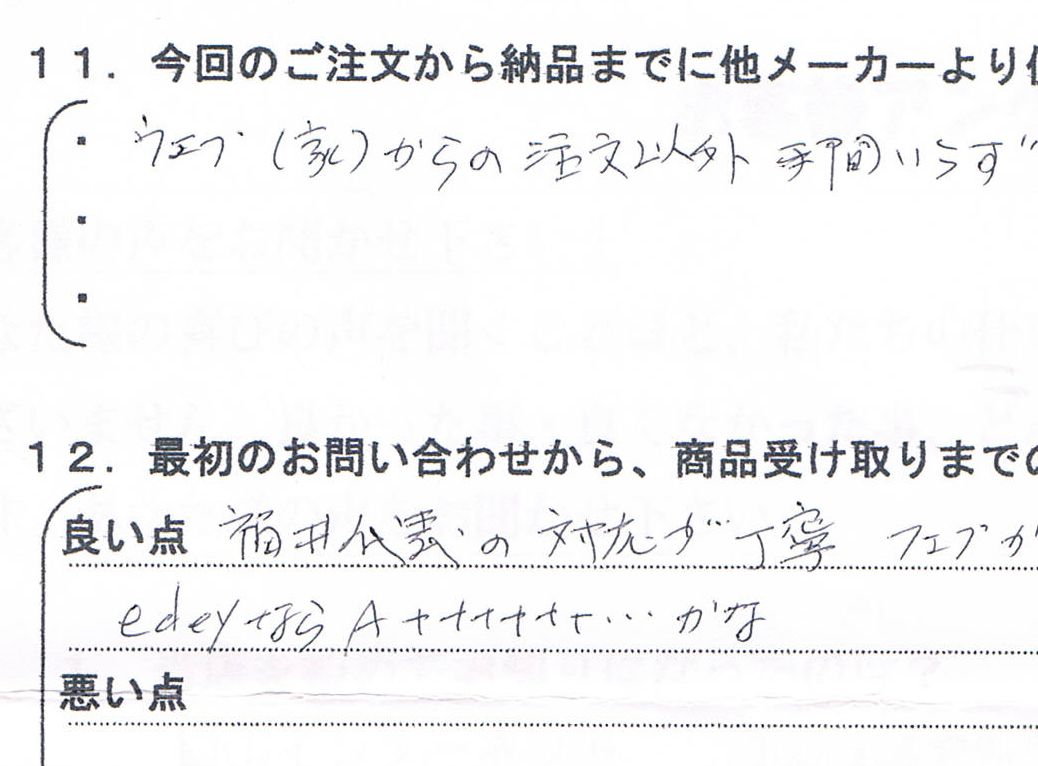 11. 今回のご注文から納品までに他メーカーより
・ ウェブ(家)からの注文以外 手間いらず
・
・
12. 最初のお問い合わせから、商品受け取りまでの
良い点 福井代表の対応が丁寧 ウェブが
edeyなら A+++++++… かな
悪い点